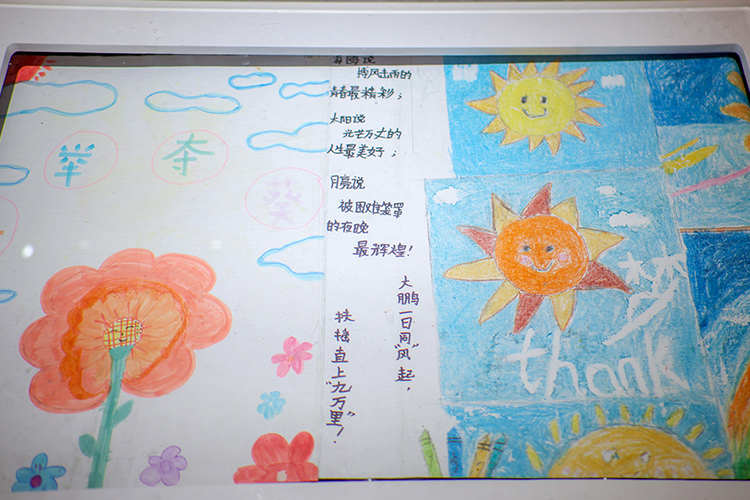 举 夺 葵
说
搏风击雨的
青春最精彩；
太阳说
光芒万丈的
人生最美好；
月亮说
被困难笼罩
的夜晚
最辉煌！
大鹏一日同“风”起，
扶摇直上“九万里”！
梦
thank